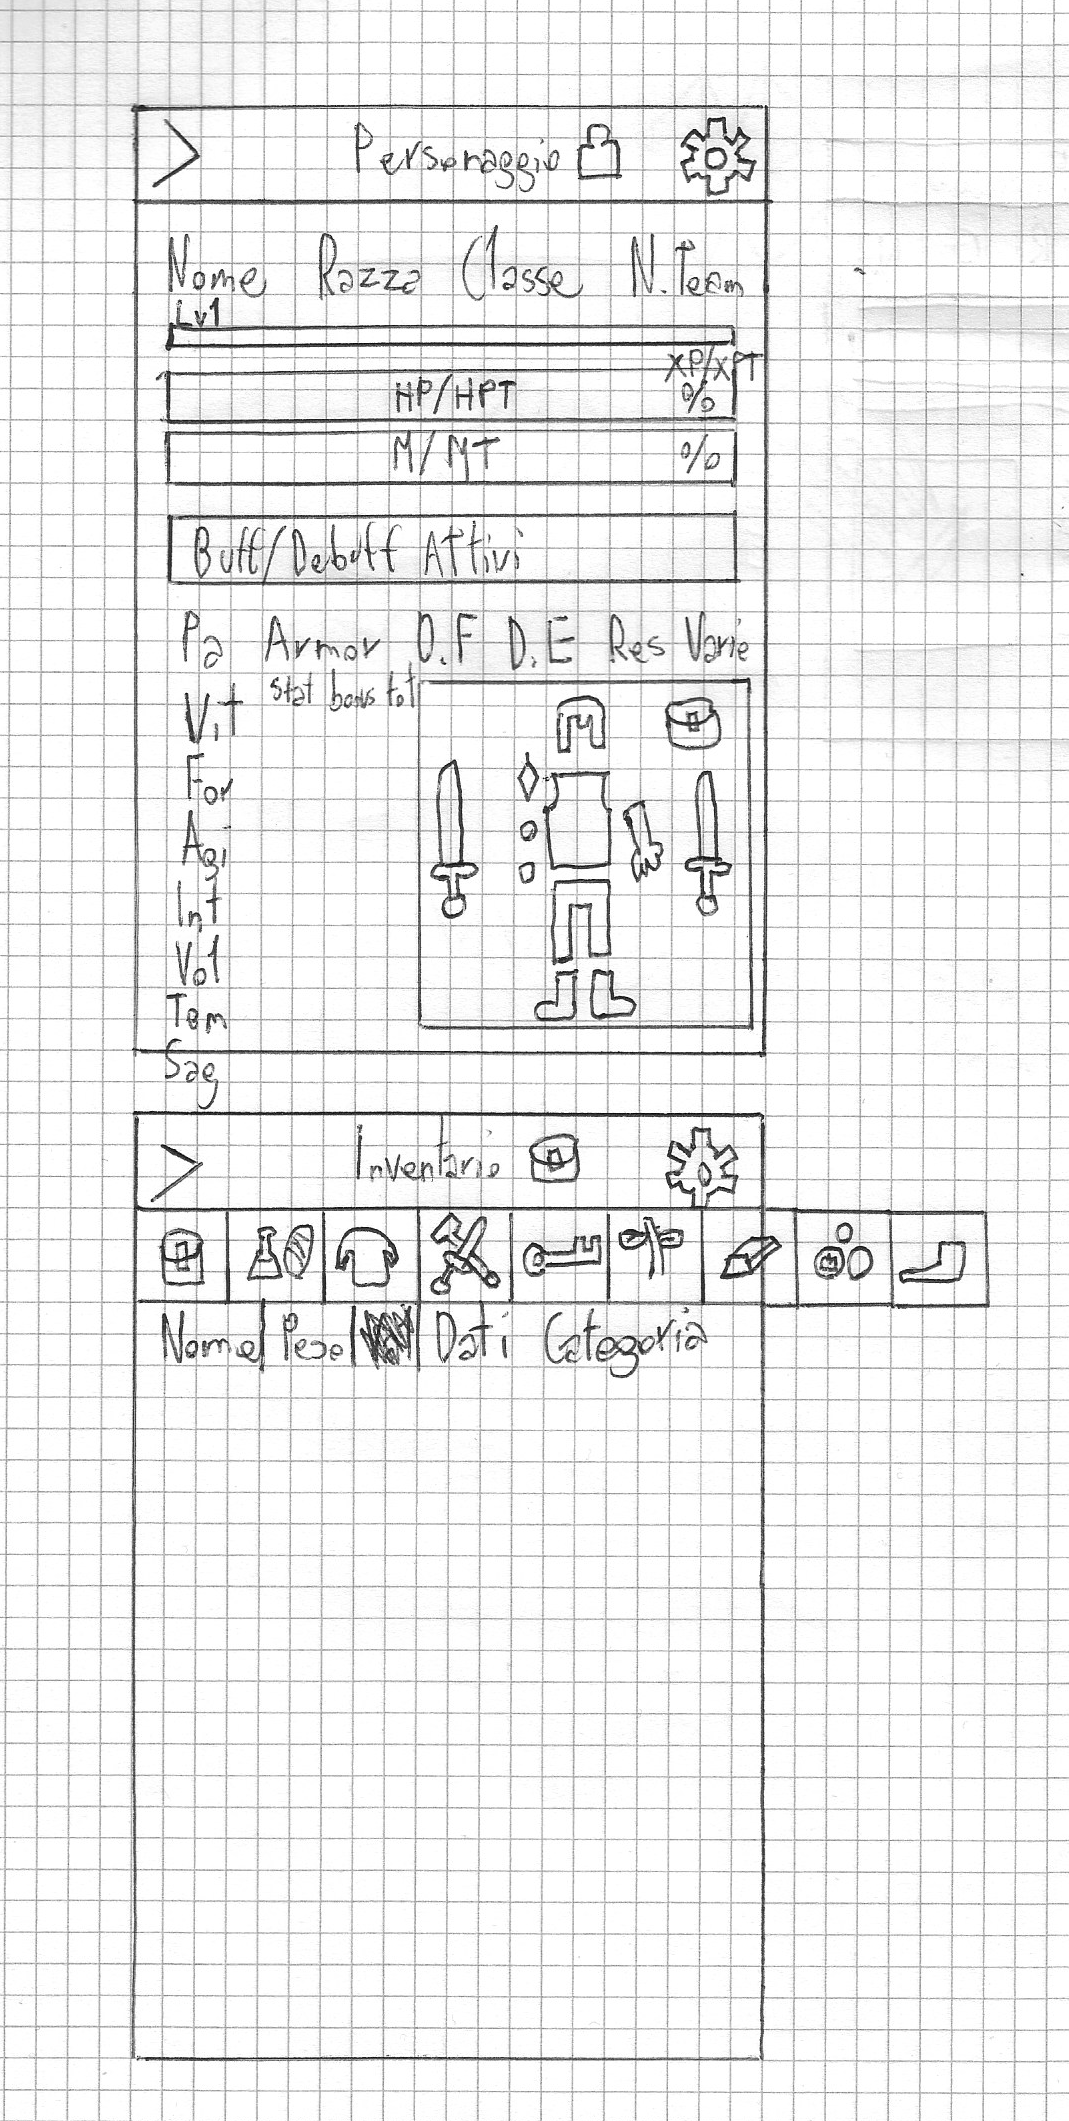 Personaggio
Nome Razza Classe N.Team
Lv1
XP/XPT
HP/HPT %
M/MT %
Buff/Debuff Attivi
Pa Armor D.F D.E Res Varie
stat bonus tot
Vit
For
Agi
Int
Vol
Tem
Sag
Inventario
Nome/ Peso/ Dati Categoria